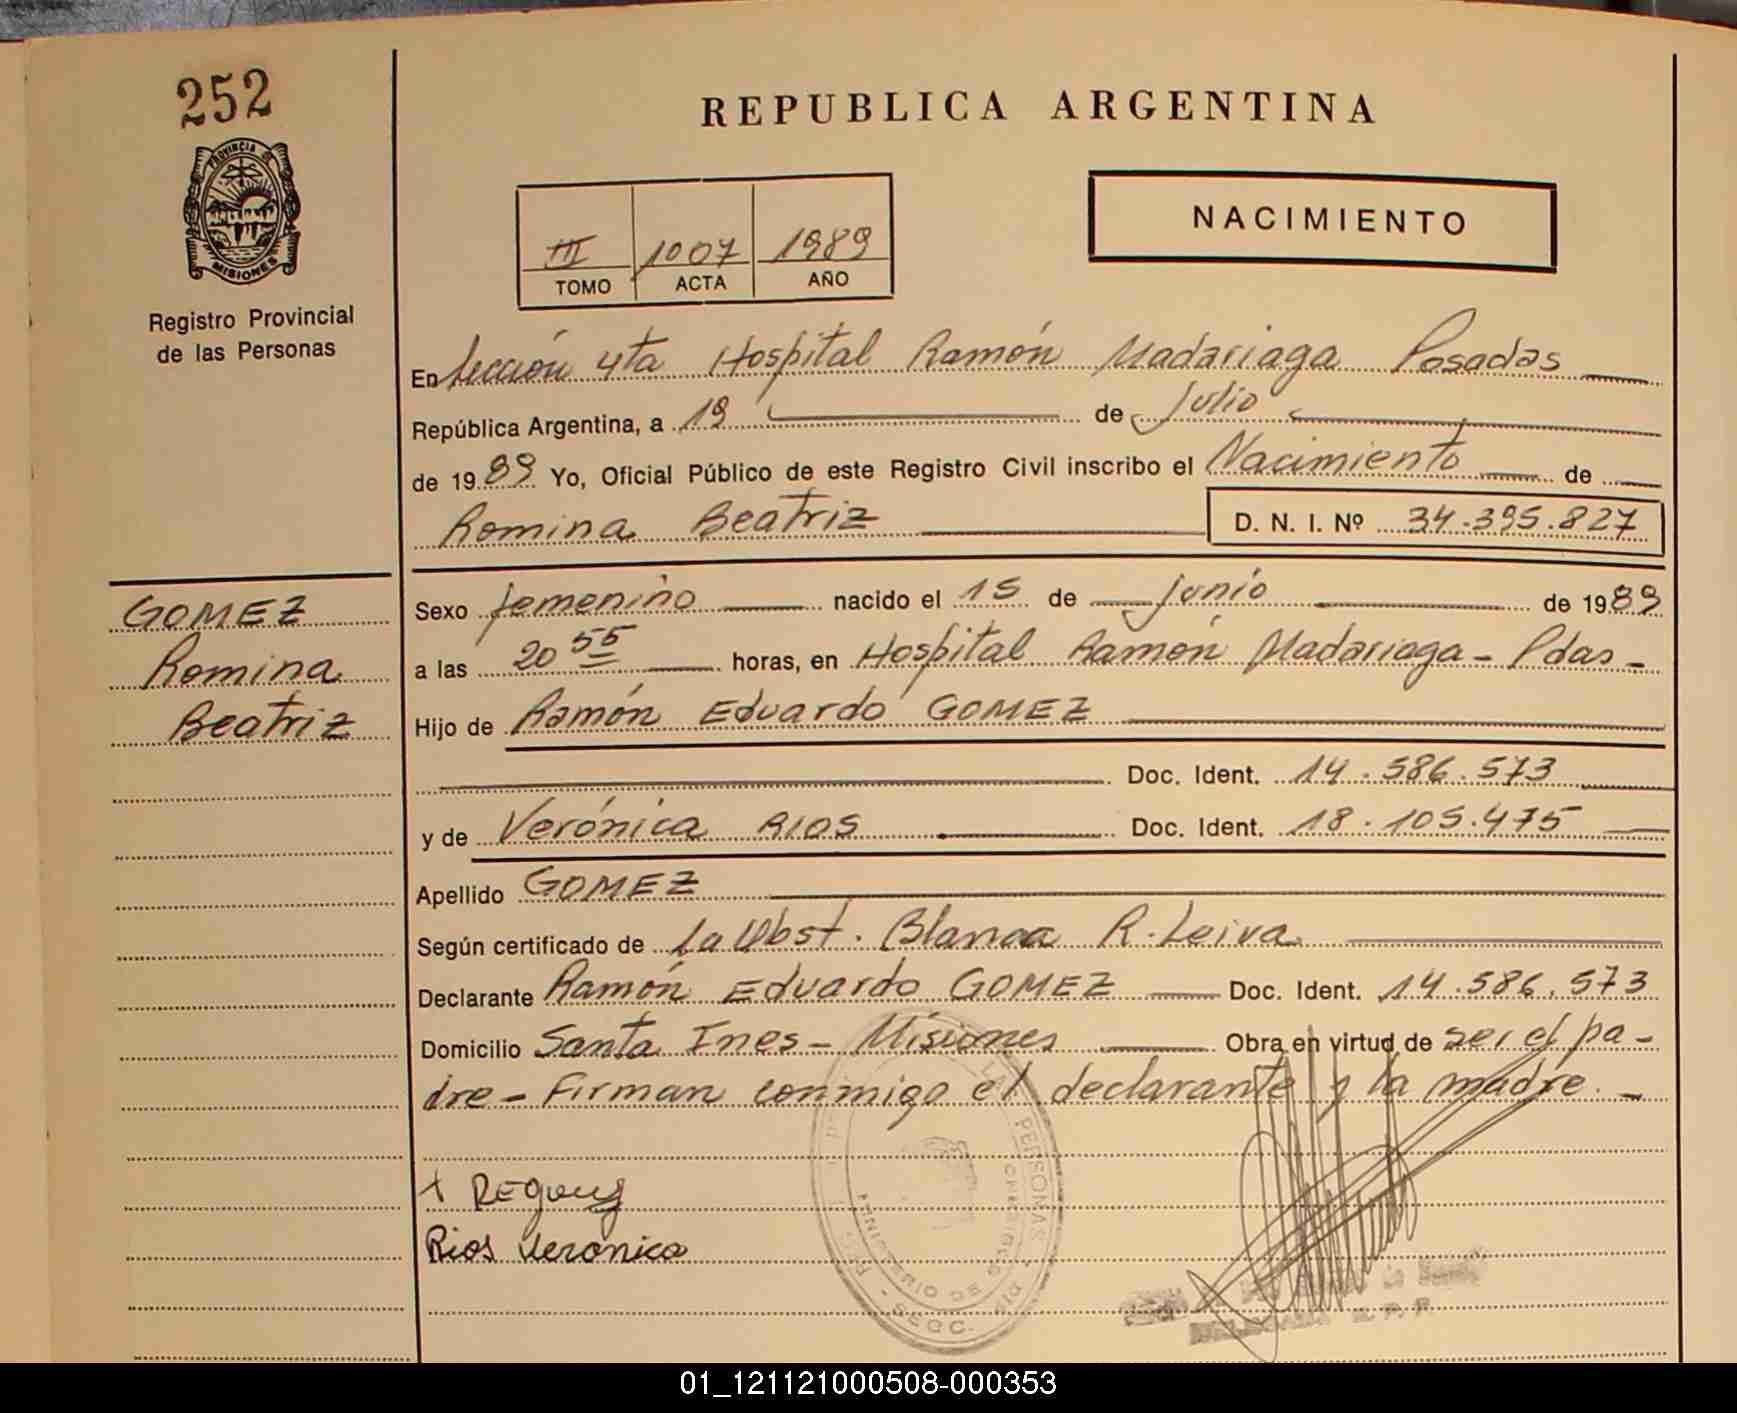 252
PROVINCIA DE
MISIONES
Registro Provincial
de las Personas
GOMEZ
Romina
Beatriz
REPUBLICA ARGENTINA
III 1007 1989
TOMO ACTA AÑO
NACIMIENTO
En Sección 4ta Hospital Ramón Madariaga Posadas
República Argentina, a 19 de Julio
de 1989 Yo, Oficial Público de este Registro Civil inscribo el Nacimiento de
Romina Beatriz D. N. I. Nº 34.395.827
Sexo femenino nacido el 15 de junio de 1989
a las 20 55 horas, en Hospital Ramón Madariaga - Pdas -
Hijo de Ramón Eduardo GOMEZ
Doc. Ident. 14.586.573
y de Verónica RIOS Doc. Ident. 18.105.475
Apellido GOMEZ
Según certificado de La Obst. Blanca R. Leiva
Declarante Ramón Eduardo GOMEZ Doc. Ident. 14.586.573
Domicilio Santa Ines - Misiones Obra en virtud de ser el pa-
dre - Firman conmigo el declarante y la madre. -
Rios Veronica
PERSONAS
01_121121000508-000353